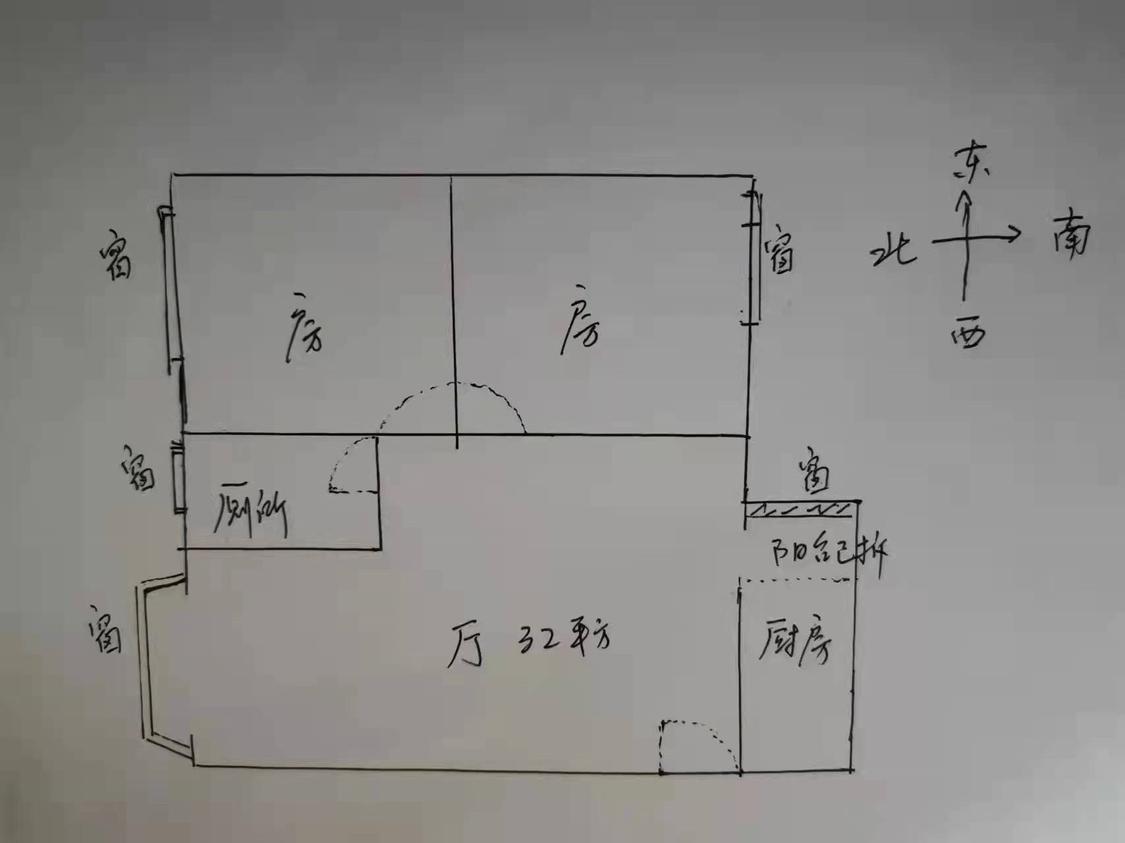 东
北
南
西
窗
窗
房
房
窗
窗
厕所
阳台已拆
窗
厅 32平方
厨房